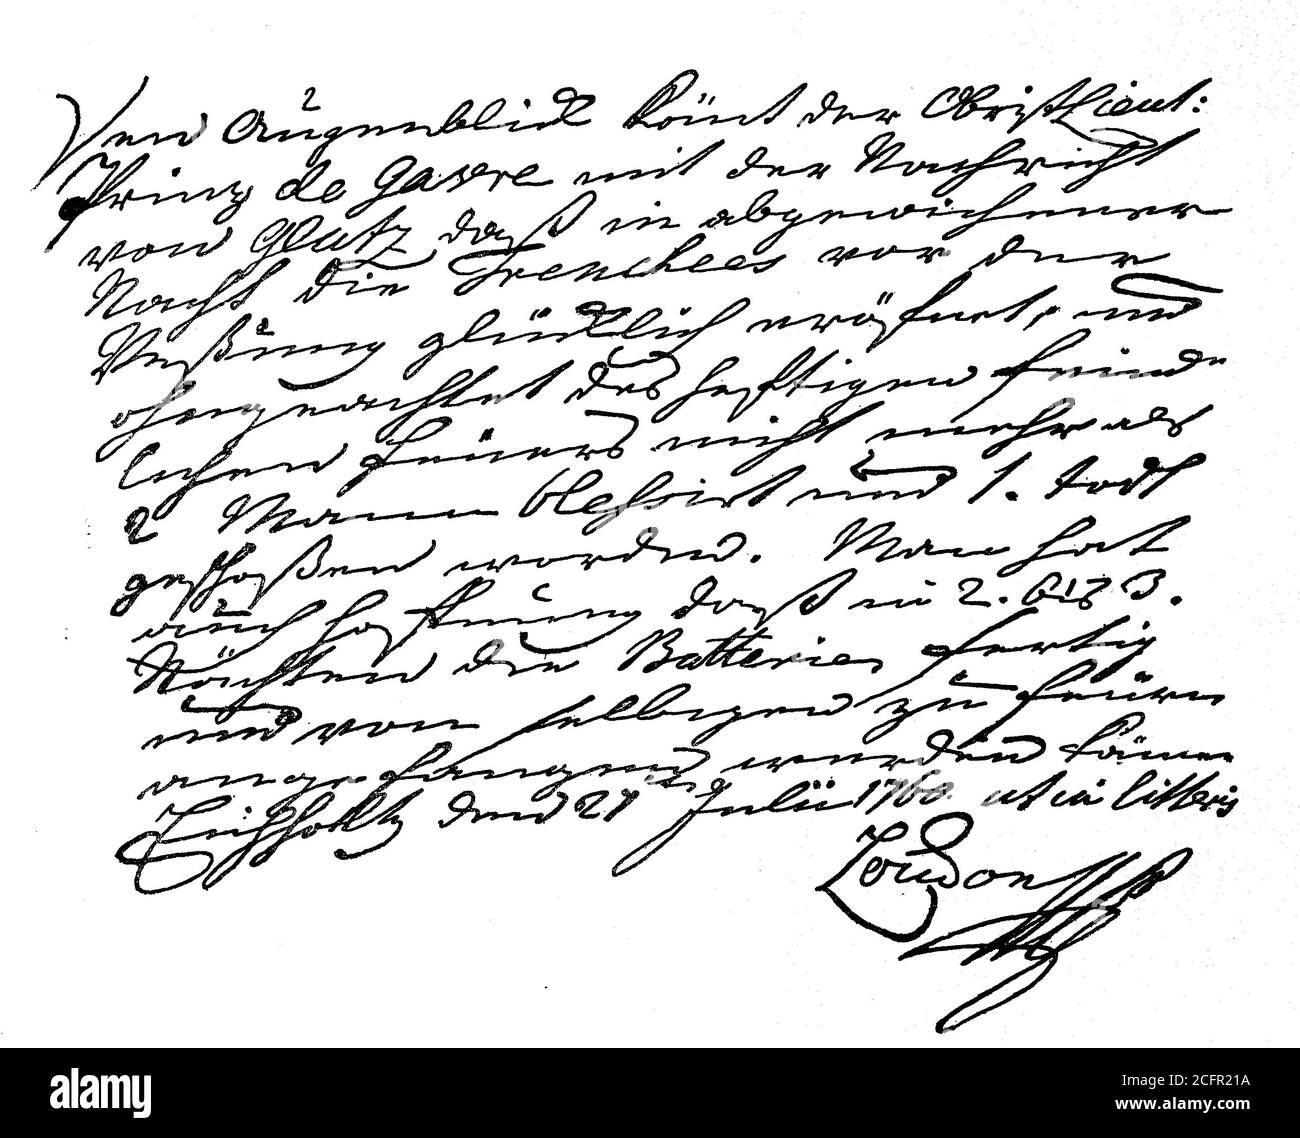 Den Augenblick kömt der Obristlieut:
Prinz de Gavre mit der Nachricht
von Glatz, daß in abgewichener
Nacht die Trenchees vor der
Vestung glücklich eröfnet, und
ohngeachtet des heftigen feind
lichen Feuers nicht mehr als
2 Mann blessirt und 1. todt
geschoßen worden. Man hat
auch Hoffnung daß in 2. bis 3.
Nächten die Batterien fertig
und von selbigen zu feuern
angefangen werden könne
Eichholtz den 21ten Julii 1760. ut in litteris
Loudon
alamy
Image ID: 2CFR21A
www.alamy.com